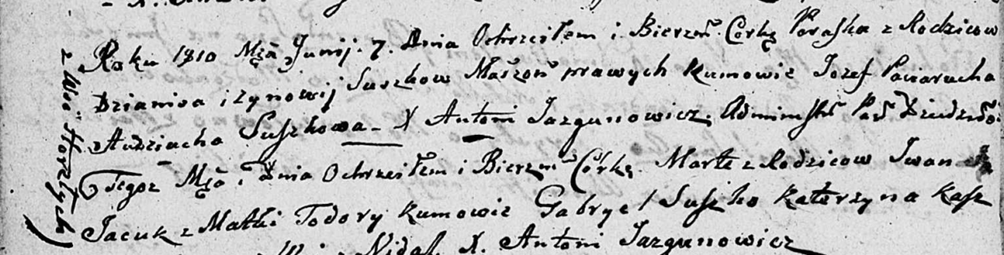 Roku 1810 Mca Junij. 7. Dnia Ochrzciłem i Bierzm. Córkę Paraska z Rodzicow
Dzianisa i Zynowij Suszkow Małżoń prawych Kumowie Jozef Paciarucha
Audziucha Suszkowa – X Antoni Jazgunowicz Administ
z Wsi
Tegoż Mca i Dnia Ochrzciłem i Bierzm Córkę. Marte z Rodzicow Iwan
Jacuk z Matki Todory Kumowie Gabryel Suszko Katerzyna
X. Antoni Jazgunowicz